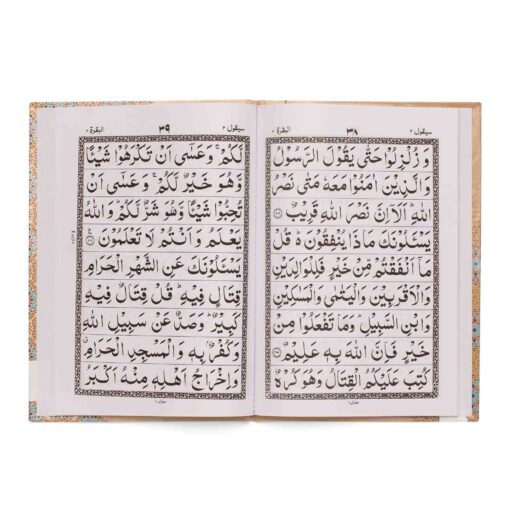 سيقول ٢ ٣٨ البقرة ٢
وَ زُلْزِلُوْا حَتّٰى يَقُوْلَ الرَّسُوْلُ
وَالَّذِيْنَ اٰمَنُوْا مَعَهٗ مَتٰى نَصْرُ
اللّٰهِ ؕ اَلَاۤ اِنَّ نَصْرَ اللّٰهِ قَرِيْبٌ
يَسْـَٔلُوْنَكَ مَاذَا يُنْفِقُوْنَ ؕ قُلْ
مَاۤ اَنْفَقْتُمْ مِّنْ خَيْرٍ فَلِلْوَالِدَيْنِ
وَالْاَقْرَبِيْنَ وَالْيَتٰمٰى وَالْمَسٰكِيْنِ
وَابْنِ السَّبِيْلِ ؕ وَمَا تَفْعَلُوْا مِنْ
خَيْرٍ فَاِنَّ اللّٰهَ بِهٖ عَلِيْمٌ
كُتِبَ عَلَيْكُمُ الْقِتَالُ وَهُوَ كُرْهٌ
منزل ١
سيقول ٢ ٣٩ البقرة ٢
لَّكُمْ ۚ وَعَسٰۤى اَنْ تَكْرَهُوْا شَيْئًا
وَّهُوَ خَيْرٌ لَّكُمْ ۚ وَعَسٰۤى اَنْ
تُحِبُّوْا شَيْئًا وَّهُوَ شَرٌّ لَّكُمْ ؕ وَاللّٰهُ
يَعْلَمُ وَاَنْتُمْ لَا تَعْلَمُوْنَ
يَسْـَٔلُوْنَكَ عَنِ الشَّهْرِ الْحَرَامِ
قِتَالٍ فِيْهِ ؕ قُلْ قِتَالٌ فِيْهِ
كَبِيْرٌ ؕ وَصَدٌّ عَنْ سَبِيْلِ اللّٰهِ
وَكُفْرٌۢ بِهٖ وَالْمَسْجِدِ الْحَرَامِ
وَاِخْرَاجُ اَهْلِهٖ مِنْهُ اَكْبَرُ
منزل ١